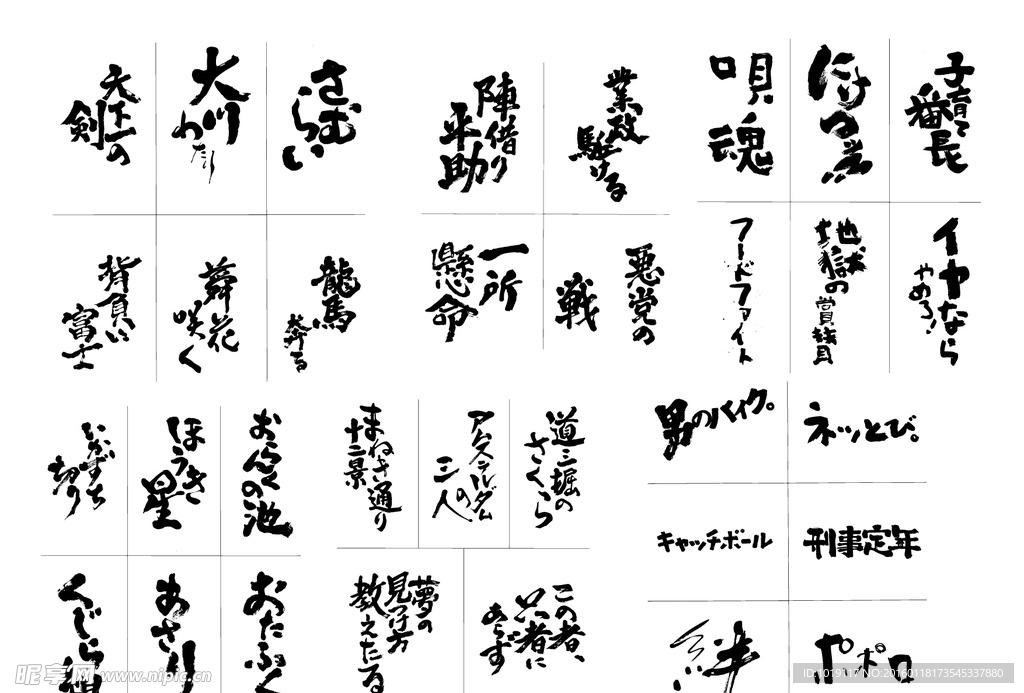 天下一の
剣
大川
わたり
さむ
らい
陣借り
平助
業政
駈ける
唄
魂
子育て
番長
背負い
富士
咲く
龍馬
奔る
一所
懸命
悪党の
戦
フードファイト
地獄の
イヤなら
やめろ!
いかずち
切り
ほうき
星
おらんくの池
まねき通り
十二景
アムステルダム
の
三人
道三堀の
さくら
男のバイク。
ネッとび。
キャッチボール
刑事定年
くじら組
あさり
おたふく
夢の
見つけ方
教えたる
この者、
只者に
あらず
絆
ポポロ
昵享网 www.nipic.cn
ID:1019117 NO:20160118173545337880